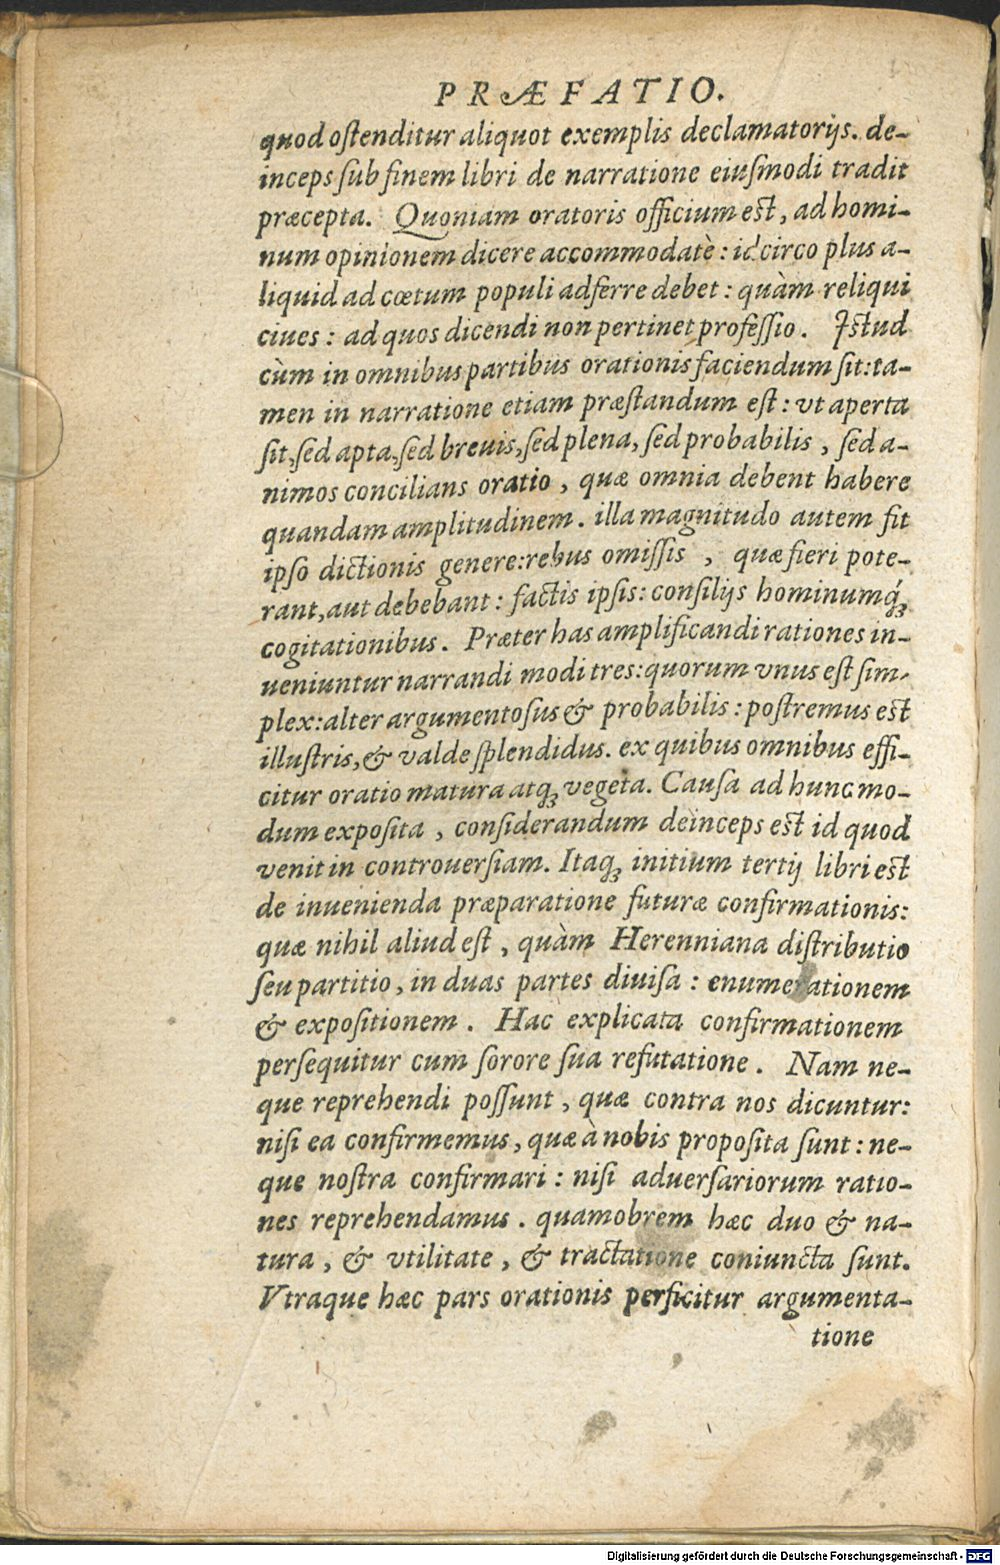 PRÆFATIO.
quod oſtenditur aliquot exemplis declamatorijs. de-
inceps ſub finem libri de narratione eiuſmodi tradit
præcepta. Quoniam oratoris officium est, ad homi-
num opinionem dicere accommodatè: idcirco plus a-
liquid ad cœtum populi adferre debet: quàm reliqui
ciues: ad quos dicendi non pertinet profeſſio. Iſtud
cùm in omnibus partibus orationis faciendum ſit: ta-
men in narratione etiam præſtandum eſt: vt aperta
ſit, ſed apta, ſed breuis, ſed plena, ſed probabilis, ſed a-
nimos concilians oratio, quæ omnia debent habere
quandam amplitudinem. illa magnitudo autem fit
ipſo dictionis genere: rebus omiſſis, quæ fieri pote-
rant, aut debebant: factis ipſis: conſilijs hominumq́ꝫ
cogitationibus. Præter has amplificandi rationes in-
ueniuntur narrandi modi tres: quorum vnus eſt ſim-
plex: alter argumentoſus & probabilis: poſtremus eſt
illuſtris, & valde ſplendidus. ex quibus omnibus effi-
citur oratio matura atqꝫ vegeta. Cauſa ad hunc mo-
dum expoſita, conſiderandum deinceps eſt id quod
venit in controuerſiam. Itaqꝫ initium tertij libri eſt
de inuenienda præparatione futuræ confirmationis:
quæ nihil aliud eſt, quàm Herenniana diſtributio
ſeu partitio, in duas partes diuiſa: enumerationem
& expoſitionem. Hac explicata confirmationem
perſequitur cum ſorore ſua refutatione. Nam ne-
que reprehendi poſſunt, quæ contra nos dicuntur:
niſi ea confirmemus, quæ à nobis propoſita ſunt: ne-
que noſtra confirmari: niſi aduerſariorum ratio-
nes reprehendamus. quamobrem hæc duo & na-
tura, & vtilitate, & tractatione coniuncta ſunt.
Vtraque hæc pars orationis perficitur argumenta-
tione
Digitalisierung gefördert durch die Deutsche Forschungsgemeinschaft - DFG